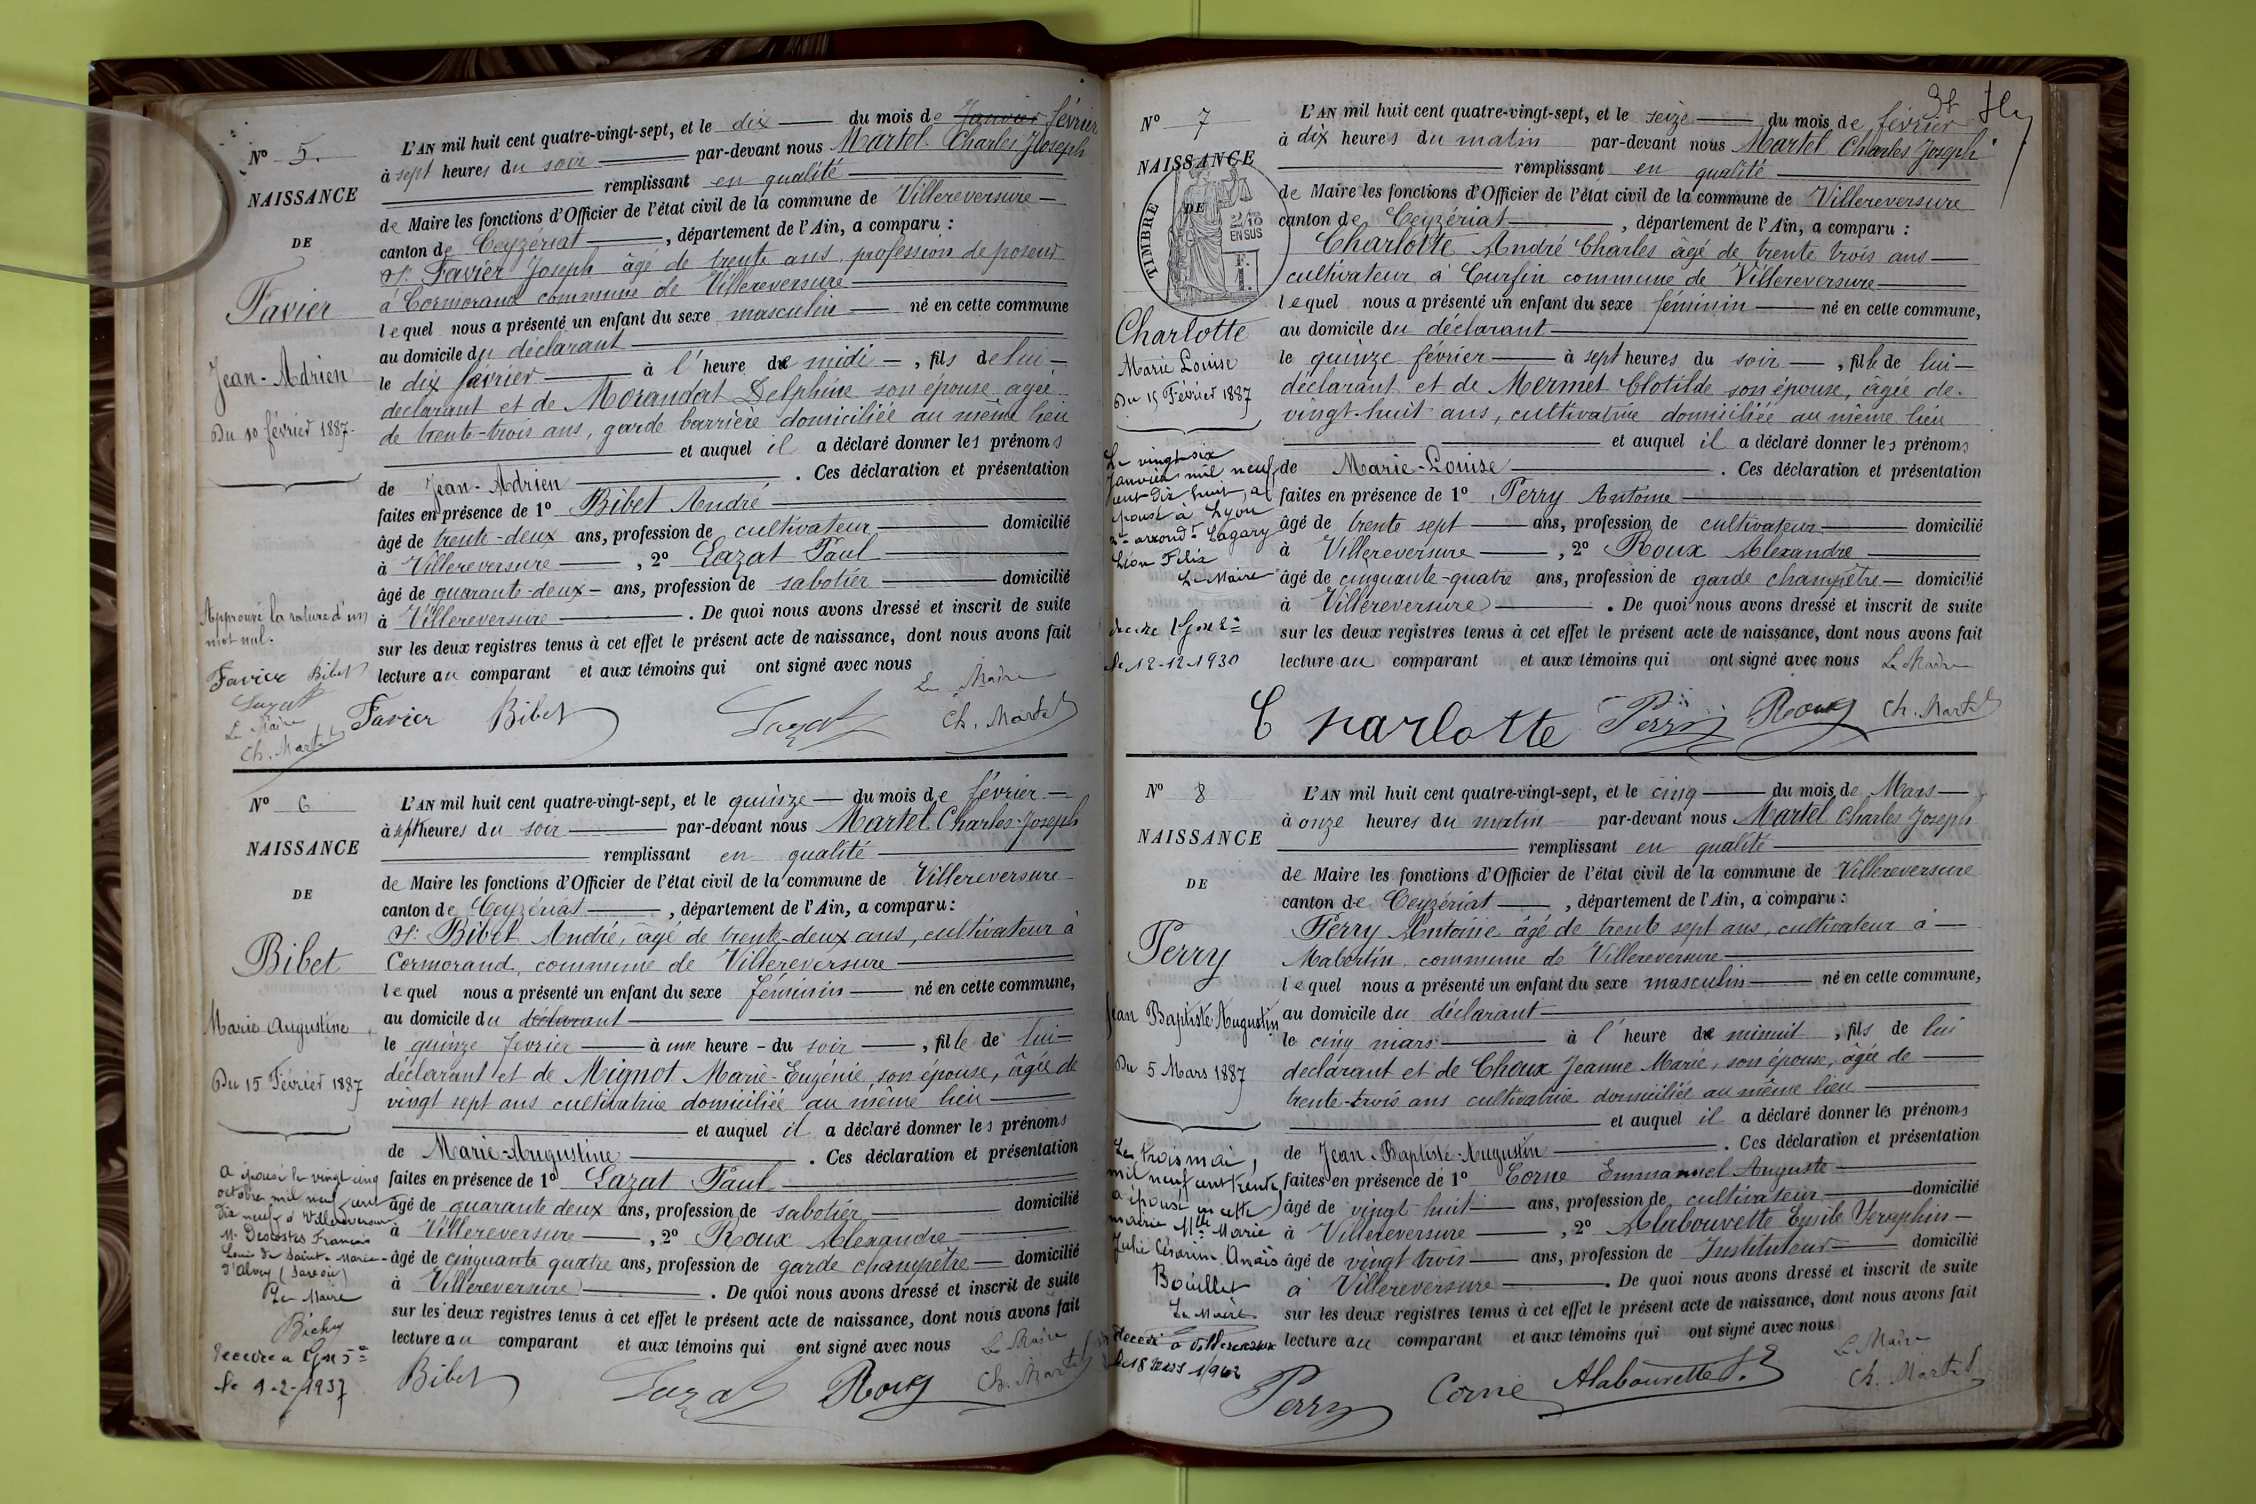 Nº 5.
NAISSANCE
DE
Favier
Jean-Adrien
Du 10 février 1887.
Approuvé la rature d'un
mot nul.
Favier Bibet
Lazat
Le Maire
Ch. Martel
L'AN mil huit cent quatre-vingt-sept, et le dix du mois de Janvier février
à sept heures du soir par-devant nous Martel Charles Joseph
remplissant en qualité
de Maire les fonctions d'Officier de l'état civil de la commune de Villereversure
canton de Ceyzériat, département de l'Ain, a comparu :
Sr Favier Joseph âgé de trente ans, profession de poseur
à Cormorand commune de Villereversure
lequel nous a présenté un enfant du sexe masculin né en cette commune
au domicile du déclarant
le dix février à l'heure de midi, fils de lui
déclarant et de Morandat Delphine son épouse âgée
de trente-trois ans, garde barrière domiciliée au même lieu
et auquel il a déclaré donner les prénoms
de Jean-Adrien. Ces déclaration et présentation
faites en présence de 1º Bibet André
âgé de trente-deux ans, profession de cultivateur domicilié
à Villereversure, 2º Lazat Paul
âgé de quarante-deux ans, profession de sabotier domicilié
à Villereversure. De quoi nous avons dressé et inscrit de suite
sur les deux registres tenus à cet effet le présent acte de naissance, dont nous avons fait
lecture au comparant et aux témoins qui ont signé avec nous
Le Maire
Favier Bibet Lazat Ch. Martel
Nº 6
NAISSANCE
DE
Bibet
Marie Augustine
Du 15 Février 1887
a épousé le vingt cinq
octobre mil neuf cent
dix neuf à Villereversure
M. Descostes François
Louis de Saint-Marie
d'Alvey (Savoie)
Le Maire
Bichy
Décédée à Lyon 5e
le 9-2-1937
L'AN mil huit cent quatre-vingt-sept, et le quinze du mois de février
à sept heures du soir par-devant nous Martel Charles-Joseph
remplissant en qualité
de Maire les fonctions d'Officier de l'état civil de la commune de Villereversure
canton de Ceyzériat, département de l'Ain, a comparu :
Sr Bibet André, âgé de trente-deux ans, cultivateur à
Cormorand, commune de Villereversure
lequel nous a présenté un enfant du sexe féminin né en cette commune,
au domicile du déclarant
le quinze février à une heure du soir, fille de lui
déclarant et de Mignot Marie-Eugénie son épouse, âgée de
vingt sept ans cultivatrice domiciliée au même lieu
et auquel il a déclaré donner les prénoms
de Marie-Augustine. Ces déclaration et présentation
faites en présence de 1º Lazat Paul
âgé de quarante deux ans, profession de sabotier domicilié
à Villereversure, 2º Roux Alexandre
âgé de cinquante quatre ans, profession de garde champêtre domicilié
à Villereversure. De quoi nous avons dressé et inscrit de suite
sur les deux registres tenus à cet effet le présent acte de naissance, dont nous avons fait
lecture au comparant et aux témoins qui ont signé avec nous
Le Maire
Bibet Lazat Roux Ch. Martel
Nº 7
NAISSANCE
DE
TIMBRE
2/10
EN SUS
Charlotte
Marie Louise
Du 15 Février 1887
Le vingt-six
Janvier mil neuf
cent dix huit, a
épousé à Lyon
2e arrondt Lagary
Léon Félix
Le Maire
décédée Lyon 2e
le 12-12-1930
L'AN mil huit cent quatre-vingt-sept, et le seize du mois de février
à dix heures du matin par-devant nous Martel Charles Joseph
remplissant en qualité
de Maire les fonctions d'Officier de l'état civil de la commune de Villereversure
canton de Ceyzériat, département de l'Ain, a comparu :
Charlotte André Charles âgé de trente trois ans
cultivateur à Curfin commune de Villereversure
lequel nous a présenté un enfant du sexe féminin né en cette commune,
au domicile du déclarant
le quinze février à sept heures du soir, fille de lui
déclarant et de Mermet Clotilde son épouse, âgée de
vingt-huit ans, cultivatrice domiciliée au même lieu
et auquel il a déclaré donner les prénoms
de Marie-Louise. Ces déclaration et présentation
faites en présence de 1º Perry Antoine
âgé de trente sept ans, profession de cultivateur domicilié
à Villereversure, 2º Roux Alexandre
âgé de cinquante-quatre ans, profession de garde champêtre domicilié
à Villereversure. De quoi nous avons dressé et inscrit de suite
sur les deux registres tenus à cet effet le présent acte de naissance, dont nous avons fait
lecture au comparant et aux témoins qui ont signé avec nous Le Maire
Charlotte Perry Roux Ch. Martel
Nº 8
NAISSANCE
DE
Perry
Jean Baptiste Augustin
Du 5 Mars 1887
Le trois mai,
mil neuf cent trente
a épousé en cette
mairie Mlle Marie
Julie Césarine Anaïs
Bouillet
Le Maire
décédé à Villereversure
le 18 mars 1962
L'AN mil huit cent quatre-vingt-sept, et le cinq du mois de Mars
à onze heures du matin par-devant nous Martel Charles Joseph
remplissant en qualité
de Maire les fonctions d'Officier de l'état civil de la commune de Villereversure
canton de Ceyzériat, département de l'Ain, a comparu :
Perry Antoine âgé de trente sept ans, cultivateur à
Mabertin, commune de Villereversure
lequel nous a présenté un enfant du sexe masculin né en cette commune,
au domicile du déclarant
le cinq mars à l'heure de minuit, fils de lui
déclarant et de Choux Jeanne Marie, son épouse, âgée de
trente-trois ans cultivatrice domiciliée au même lieu
et auquel il a déclaré donner les prénoms
de Jean-Baptiste-Augustin. Ces déclaration et présentation
faites en présence de 1º Corne Emmanuel Auguste
âgé de vingt huit ans, profession de cultivateur domicilié
à Villereversure, 2º Alabouvette Emile Séraphin
âgé de vingt trois ans, profession de Instituteur domicilié
à Villereversure. De quoi nous avons dressé et inscrit de suite
sur les deux registres tenus à cet effet le présent acte de naissance, dont nous avons fait
lecture au comparant et aux témoins qui ont signé avec nous
Le Maire
Perry Corne Alabouvette S.E Ch. Martel